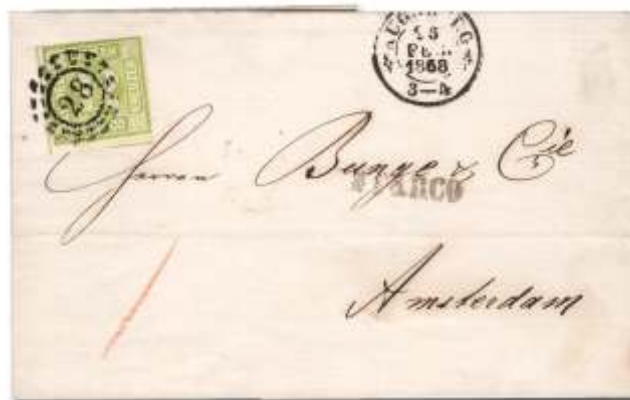 28
AUGSBURG
1868
3—4
Herren Bunge & Cie
FRANCO
Amsterdam